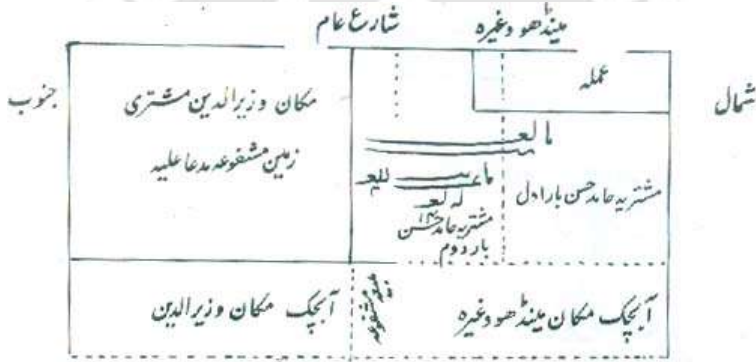 شارع عام
مینڈھو وغیرہ
جنوب
مکان وزیرالدین مشتری
زمین مشفوعہ مدعا علیہ
عملہ
شمال
مشتریہ حامد حسن بار اول
مشتریہ حامد حسن
بار دوم
آبچک مکان وزیرالدین
مشفوعہ
آبچک مکان مینڈھو وغیرہ